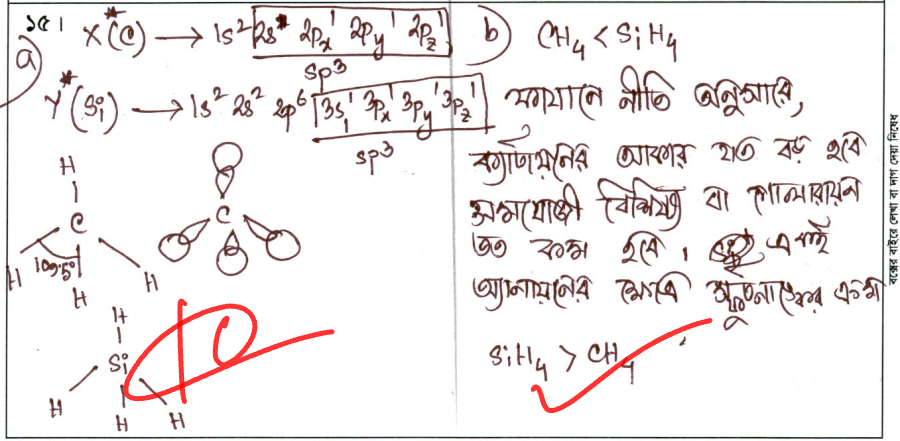 ১৫।
a)
X*(C) → 1s² 2s¹ 2pₓ¹ 2pᵧ¹ 2p_z¹
sp³
Y*(Si) → 1s² 2s² 2p⁶ 3s¹ 3pₓ¹ 3pᵧ¹ 3p_z¹
sp³
H
C
H 109.5° H
H
C
H
Si
H H H
10
b) CH₄ < SiH₄
ফাযানে নীতি অনুসারে,
ক্যাটায়নের আকার যত বড় হবে
সমযোজী বৈশিষ্ট্য বা পোলারায়ন
তত কম হবে। একই
অ্যানায়নের ক্ষেত্রে স্ফুটনাঙ্কের ক্রম
SiH₄ > CH₄
বক্সের বাইরে লেখা বা দাগ দেয়া নিষেধ